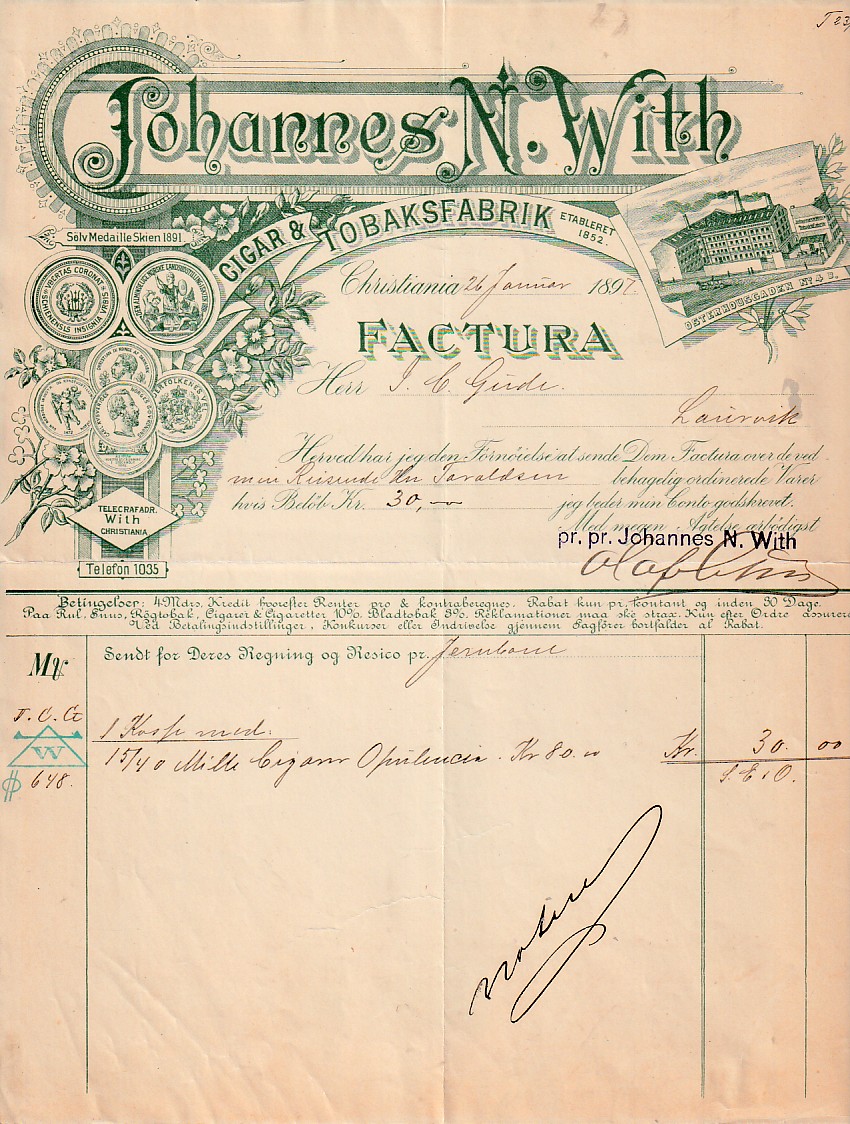 T 23/
Johannes N. With
CIGAR & TOBAKSFABRIK
ETABLERET 1852.
Sölv Medaille Skien 1891.
OSTERHOUSGADEN Nº 4 B.
Christiania 26 Januar 1897.
FACTURA
Herr J. C. Gude.
Laurvik
Herved har jeg den Fornöielse at sende Dem Factura over de ved
min Reisende Hr Taraldsen behagelig ordinerede Varer
hvis Belöb Kr. 30,— jeg beder min Conto godskrevet.
Med megen Agtelse ærbödigst
pr. pr. Johannes N. With
TELEGRAFADR.
With
CHRISTIANIA
Telefon 1035
Betingelser: 4 Mdrs. Kredit hvorefter Renter pro & kontraberegnes. Rabat kun pr. kontant og inden 30 Dage.
Paa Rul, Snus, Rögtobak, Cigarer & Cigaretter 10%. Bladtobak 3%. Reklamationer maa ske strax. Kun efter Ordre assurere
Ved Betalingsindstillinger, Konkurser eller Indrivelse gjennem Sagförer bortfalder al Rabat.
Sendt for Deres Regning og Resico pr. Jernbane
J. C. G
W
648.
1 Kasse med:
15/40 Mille Cigarer Opulencia. Kr 80.00 Kr. 30. 00
S. E. & O.